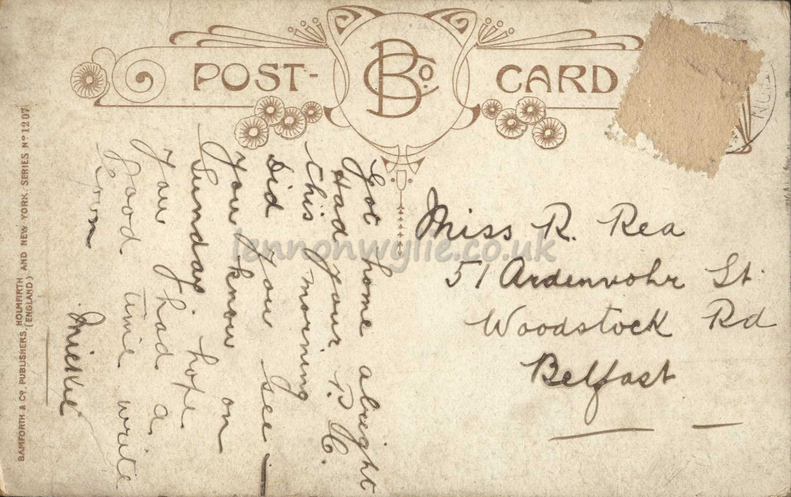 POST-CARD
B Co.
Got home alright
Had your P.C.
this morning
Did you see
you know on
Sunday hope
you had a
good time write
Mickie
Miss R. Rea
51 Ardenvohr St.
Woodstock Rd
Belfast
BAMFORTH & Co. PUBLISHERS, HOLMFIRTH AND NEW YORK. SERIES No 1207
(ENGLAND)
lennonwylie.co.uk